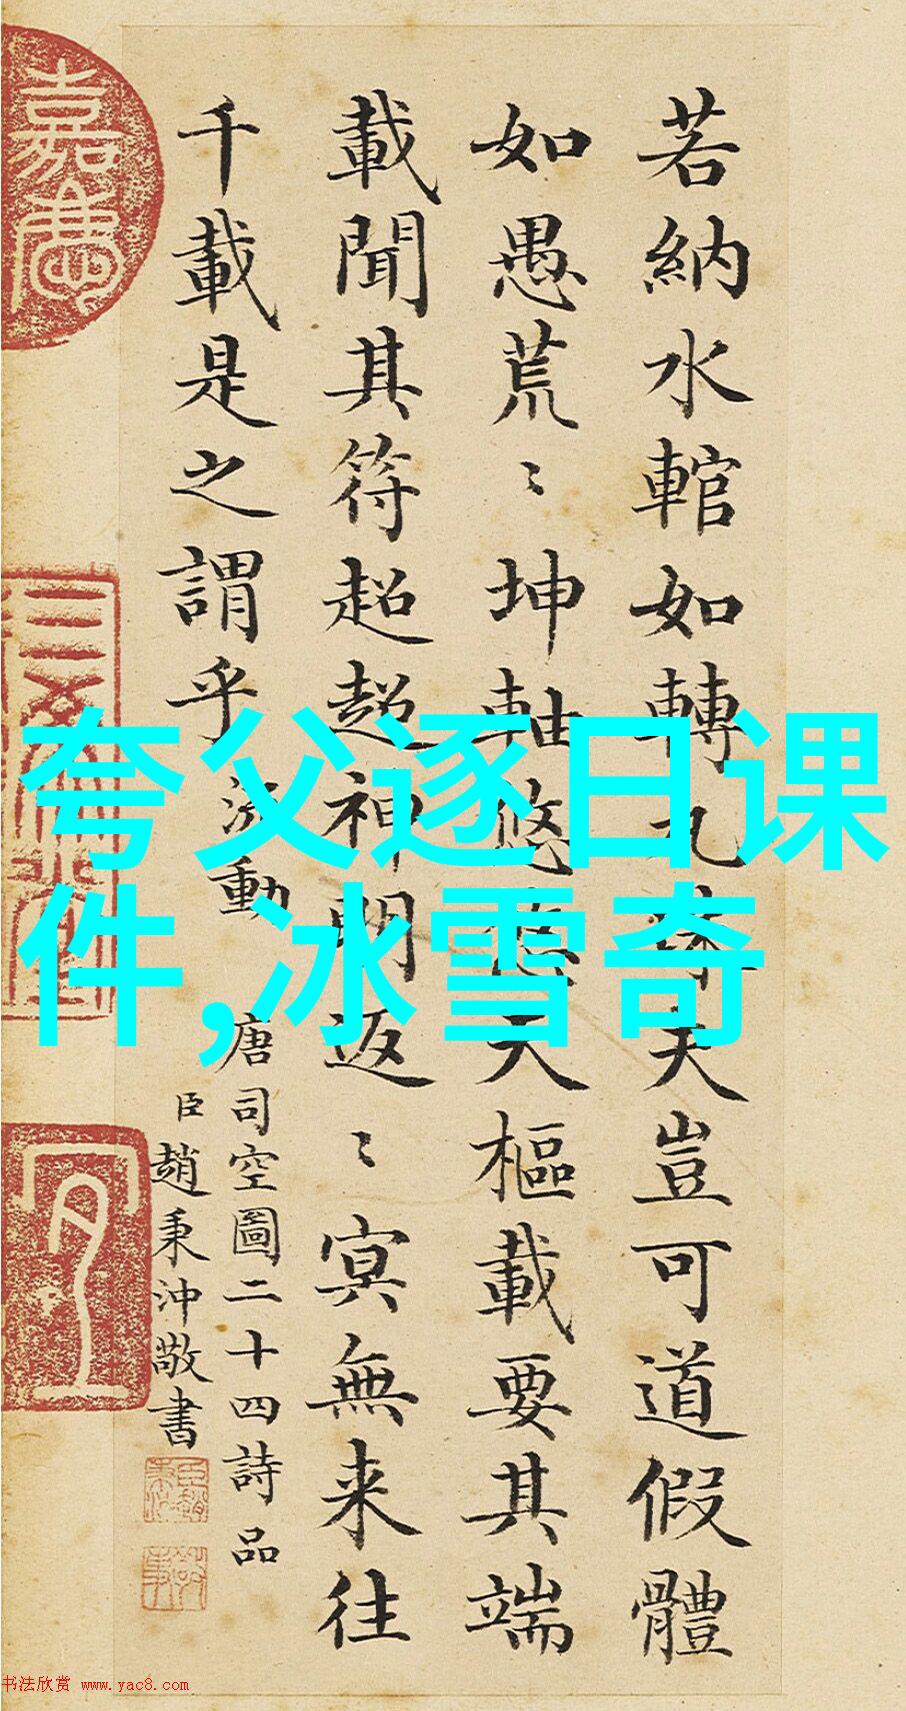 若納水輨如轉丸珠夫豈可道假體
如愚荒〻坤軸悠悠天樞載要其端
載聞其符超超神明返〻冥無来往
千載是之謂乎 流動
唐司空圖二十四詩品
臣趙秉沖敬書
嘉慶
夸父逐日课
件,冰雪奇
书法欣赏 www.yac8.com